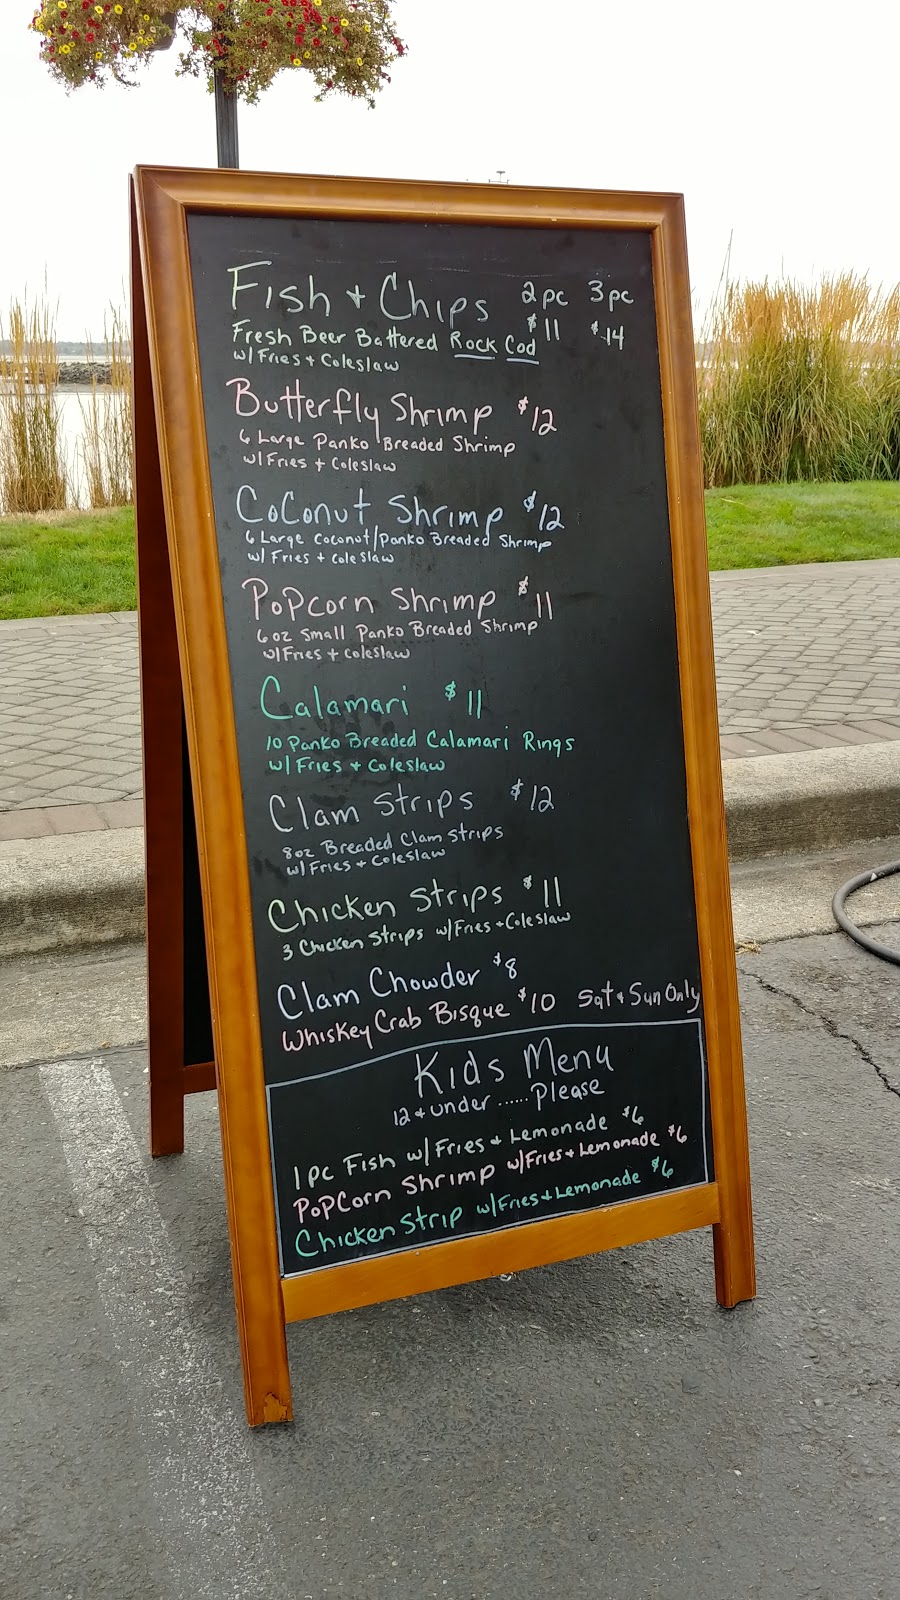 Fish + Chips 2pc 3pc
Fresh Beer Battered Rock Cod $11 $14
w/Fries + Coleslaw
Butterfly Shrimp $12
6 Large Panko Breaded Shrimp
w/Fries + Coleslaw
Coconut Shrimp $12
6 Large Coconut/Panko Breaded Shrimp
w/ Fries + Coleslaw
Popcorn Shrimp $11
6oz Small Panko Breaded Shrimp
w/Fries + Coleslaw
Calamari $11
10 Panko Breaded Calamari Rings
w/ Fries + Coleslaw
Clam Strips $12
8oz Breaded Clam Strips
w/ Fries + Coleslaw
Chicken Strips $11
3 Chicken Strips w/Fries + Coleslaw
Clam Chowder $8
Whiskey Crab Bisque $10 Sat + Sun Only
Kids Menu
12 + under ...... Please
1pc Fish w/Fries + Lemonade $6
Popcorn Shrimp w/Fries + Lemonade $6
Chicken Strip w/Fries + Lemonade $6